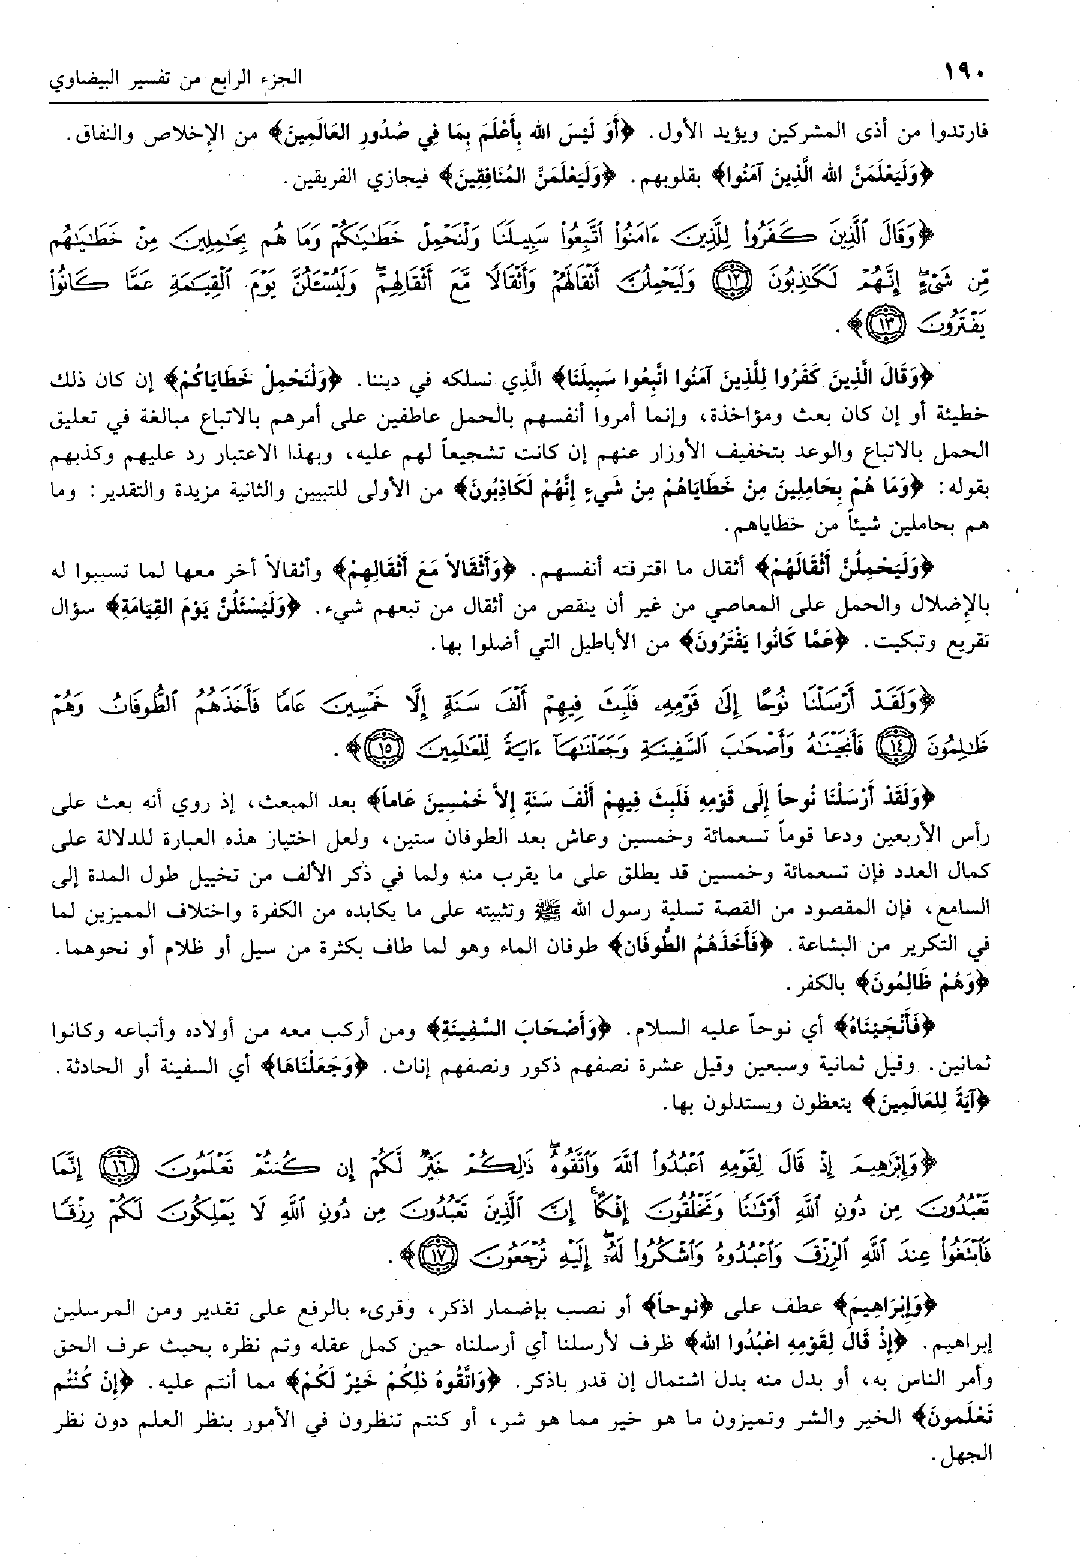 ١٩٠
الجزء الرابع من تفسير البيضاوي
فارتدوا من أذى المشركين ويؤيد الأول. ﴿أَوَ لَيْسَ الله بِأَعْلَمَ بِمَا فِي صُدُورِ العَالَمِينَ﴾ من الإخلاص والنفاق.
﴿وَلَيَعْلَمَنَّ الله الَّذِينَ آمَنُوا﴾ بقلوبهم. ﴿وَلَيَعْلَمَنَّ المُنَافِقِينَ﴾ فيجازي الفريقين.
﴿وَقَالَ ٱلَّذِينَ كَفَرُواْ لِلَّذِينَ ءَامَنُواْ ٱتَّبِعُواْ سَبِيلَنَا وَلْنَحْمِلْ خَطَٰيَٰكُمْ وَمَا هُم بِحَٰمِلِينَ مِنْ خَطَٰيَٰهُم
مِّن شَىْءٍ إِنَّهُمْ لَكَٰذِبُونَ ﴿١٢﴾ وَلَيَحْمِلُنَّ أَثْقَالَهُمْ وَأَثْقَالًا مَّعَ أَثْقَالِهِمْ وَلَيُسْـَٔلُنَّ يَوْمَ ٱلْقِيَٰمَةِ عَمَّا كَانُواْ
يَفْتَرُونَ ﴿١٣﴾﴾.
﴿وَقَالَ الَّذِينَ كَفَرُوا لِلَّذِينَ آمَنُوا اتَّبِعُوا سَبِيلَنَا﴾ الَّذِي نسلكه في ديننا. ﴿وَلْنَحْمِلْ خَطَايَاكُمْ﴾ إن كان ذلك
خطيئة أو إن كان بعث ومؤاخذة، وإنما أمروا أنفسهم بالحمل عاطفين على أمرهم بالاتباع مبالغة في تعليق
الحمل بالاتباع والوعد بتخفيف الأوزار عنهم إن كانت تشجيعاً لهم عليه، وبهذا الاعتبار رد عليهم وكذبهم
بقوله: ﴿وَمَا هُمْ بِحَامِلِينَ مِنْ خَطَايَاهُمْ مِنْ شَيءٍ إِنَّهُمْ لَكَاذِبُونَ﴾ من الأولى للتبيين والثانية مزيدة والتقدير: وما
هم بحاملين شيئاً من خطاياهم.
﴿وَلَيَحْمِلُنَّ أَثْقَالَهُمْ﴾ أثقال ما اقترفته أنفسهم. ﴿وَأَثْقَالاً مَعَ أَثْقَالِهِمْ﴾ وأثقالاً أخر معها لما تسببوا له
بالإضلال والحمل على المعاصي من غير أن ينقص من أثقال من تبعهم شيء. ﴿وَلَيُسْئَلُنَّ يَوْمَ القِيَامَةِ﴾ سؤال
تقريع وتبكيت. ﴿عَمَّا كَانُوا يَفْتَرُونَ﴾ من الأباطيل التي أضلوا بها.
﴿وَلَقَدْ أَرْسَلْنَا نُوحًا إِلَىٰ قَوْمِهِۦ فَلَبِثَ فِيهِمْ أَلْفَ سَنَةٍ إِلَّا خَمْسِينَ عَامًا فَأَخَذَهُمُ ٱلطُّوفَانُ وَهُمْ
ظَٰلِمُونَ ﴿١٤﴾ فَأَنجَيْنَٰهُ وَأَصْحَٰبَ ٱلسَّفِينَةِ وَجَعَلْنَٰهَآ ءَايَةً لِّلْعَٰلَمِينَ ﴿١٥﴾﴾.
﴿وَلَقَدْ أَرْسَلْنَا نُوحاً إِلَى قَوْمِهِ فَلَبِثَ فِيهِمْ أَلْفَ سَنَةٍ إِلاَّ خَمْسِينَ عَاماً﴾ بعد المبعث، إذ روي أنه بعث على
رأس الأربعين ودعا قوماً تسعمائة وخمسين وعاش بعد الطوفان ستين، ولعل اختيار هذه العبارة للدلالة على
كمال العدد فإن تسعمائة وخمسين قد يطلق على ما يقرب منه ولما في ذكر الألف من تخييل طول المدة إلى
السامع، فإن المقصود من القصة تسلية رسول الله ﷺ وتثبيته على ما يكابده من الكفرة واختلاف المميزين لما
في التكرير من البشاعة. ﴿فَأَخَذَهُمُ الطُّوفَان﴾ طوفان الماء وهو لما طاف بكثرة من سيل أو ظلام أو نحوهما.
﴿وَهُمْ ظَالِمُونَ﴾ بالكفر.
﴿فَأَنْجَيْنَاهُ﴾ أي نوحاً عليه السلام. ﴿وَأَصْحَابَ السَّفِينَةِ﴾ ومن أركب معه من أولاده وأتباعه وكانوا
ثمانين. وقيل ثمانية وسبعين وقيل عشرة نصفهم ذكور ونصفهم إناث. ﴿وَجَعَلْنَاهَا﴾ أي السفينة أو الحادثة.
﴿آيَةً لِلعَالَمِينَ﴾ يتعظون ويستدلون بها.
﴿وَإِبْرَٰهِيمَ إِذْ قَالَ لِقَوْمِهِ ٱعْبُدُواْ ٱللَّهَ وَٱتَّقُوهُ ذَٰلِكُمْ خَيْرٌ لَّكُمْ إِن كُنتُمْ تَعْلَمُونَ ﴿١٦﴾ إِنَّمَا
تَعْبُدُونَ مِن دُونِ ٱللَّهِ أَوْثَٰنًا وَتَخْلُقُونَ إِفْكًا إِنَّ ٱلَّذِينَ تَعْبُدُونَ مِن دُونِ ٱللَّهِ لَا يَمْلِكُونَ لَكُمْ رِزْقًا
فَٱبْتَغُواْ عِندَ ٱللَّهِ ٱلرِّزْقَ وَٱعْبُدُوهُ وَٱشْكُرُواْ لَهُۥٓ إِلَيْهِ تُرْجَعُونَ ﴿١٧﴾﴾.
﴿وَإِبْرَاهِيمَ﴾ عطف على ﴿نوحاً﴾ أو نصب بإضمار اذكر، وقرىء بالرفع على تقدير ومن المرسلين
إبراهيم. ﴿إِذْ قَالَ لِقَوْمِهِ اعْبُدُوا الله﴾ ظرف لأرسلنا أي أرسلناه حين كمل عقله وتم نظره بحيث عرف الحق
وأمر الناس به، أو بدل منه بدل اشتمال إن قدر باذكر. ﴿وَاتَّقُوهُ ذلِكُمْ خَيْرٌ لَكُمْ﴾ مما أنتم عليه. ﴿إِنْ كُنْتُم
تَعْلَمونَ﴾ الخير والشر وتميزون ما هو خير مما هو شر، أو كنتم تنظرون في الأمور بنظر العلم دون نظر
الجهل.